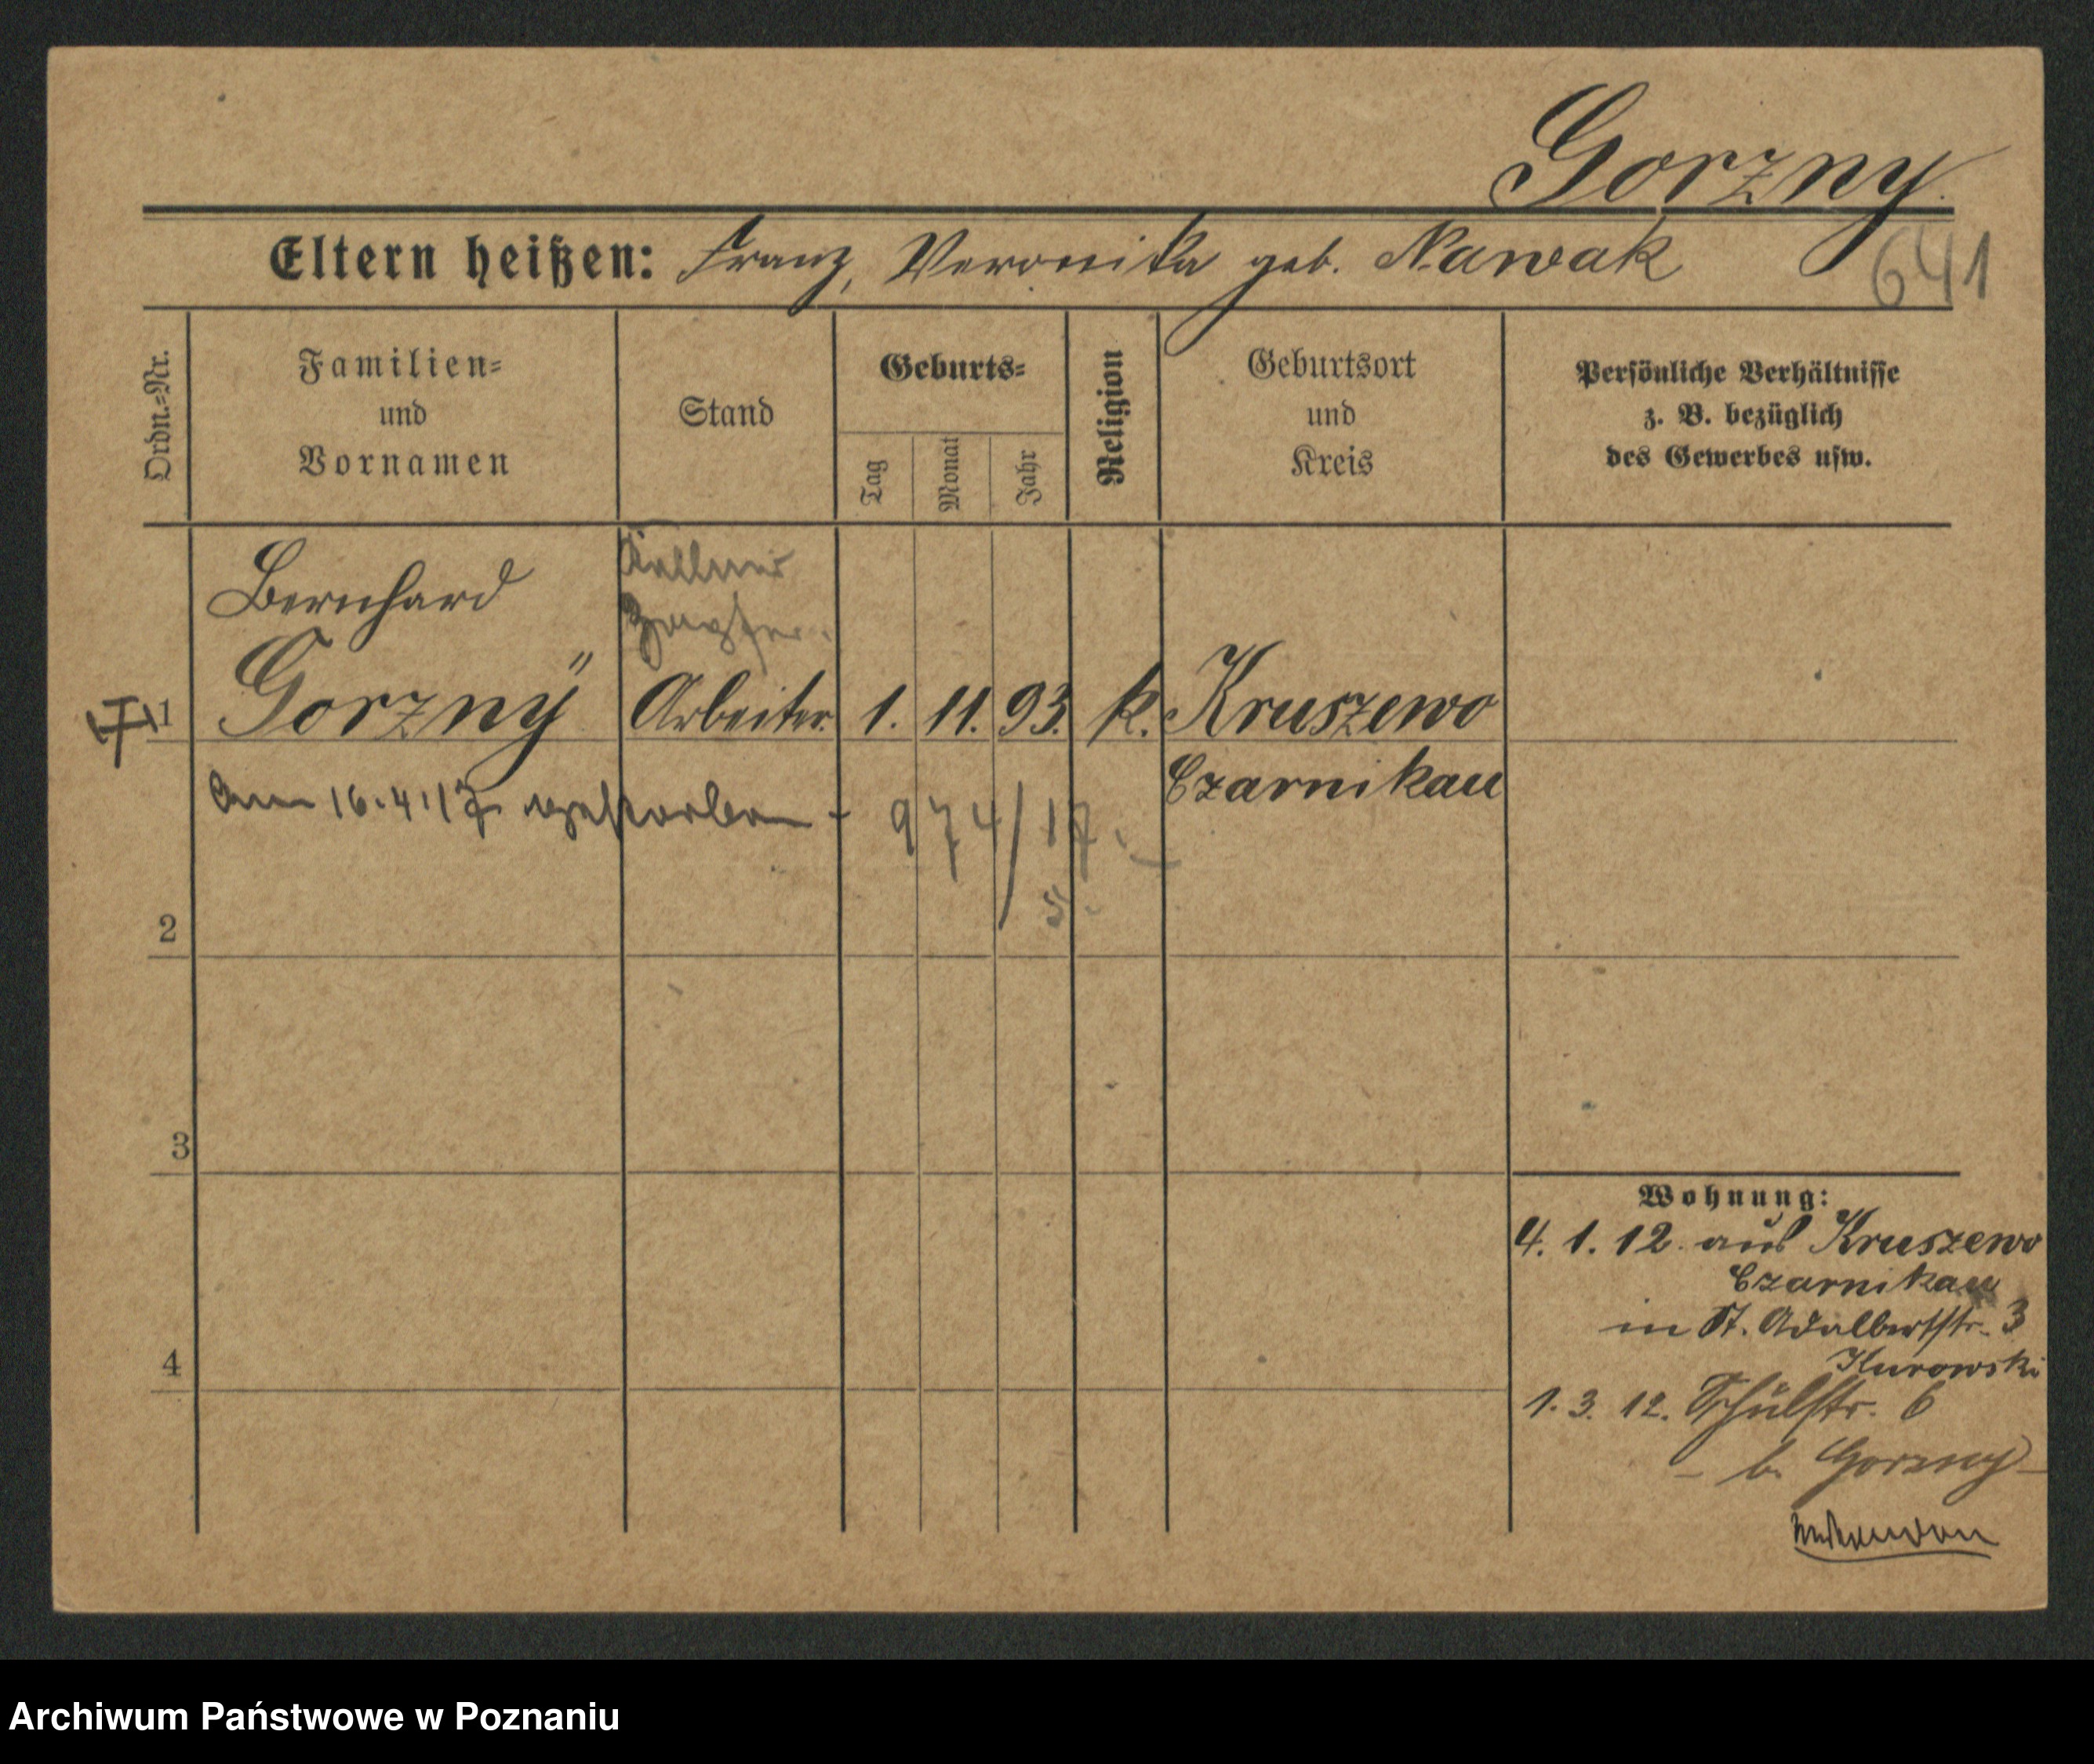 Gorzny.
Eltern heißen: Franz, Veronika geb. Nawak
641
Ordn.=Nr.
Familien=
und
Vornamen
Stand
Geburts=
Tag
Monat
Jahr
Religion
Geburtsort
und
Kreis
Persönliche Verhältnisse
z. B. bezüglich
des Gewerbes usw.
Kellner
Bernhard
1 Gorzny Arbeiter 1. 11. 93. k. Kruszewo
Czarnikau
Am 16.4.17 gestorben - 974/17.
2
3
4
Wohnung:
4. 1. 12. aus Kruszewo
Czarnikau
in St. Adalbertstr. 3
Kurowski
1. 3. 12. Schulstr. 6
- b. Gorzny -
Archiwum Państwowe w Poznaniu